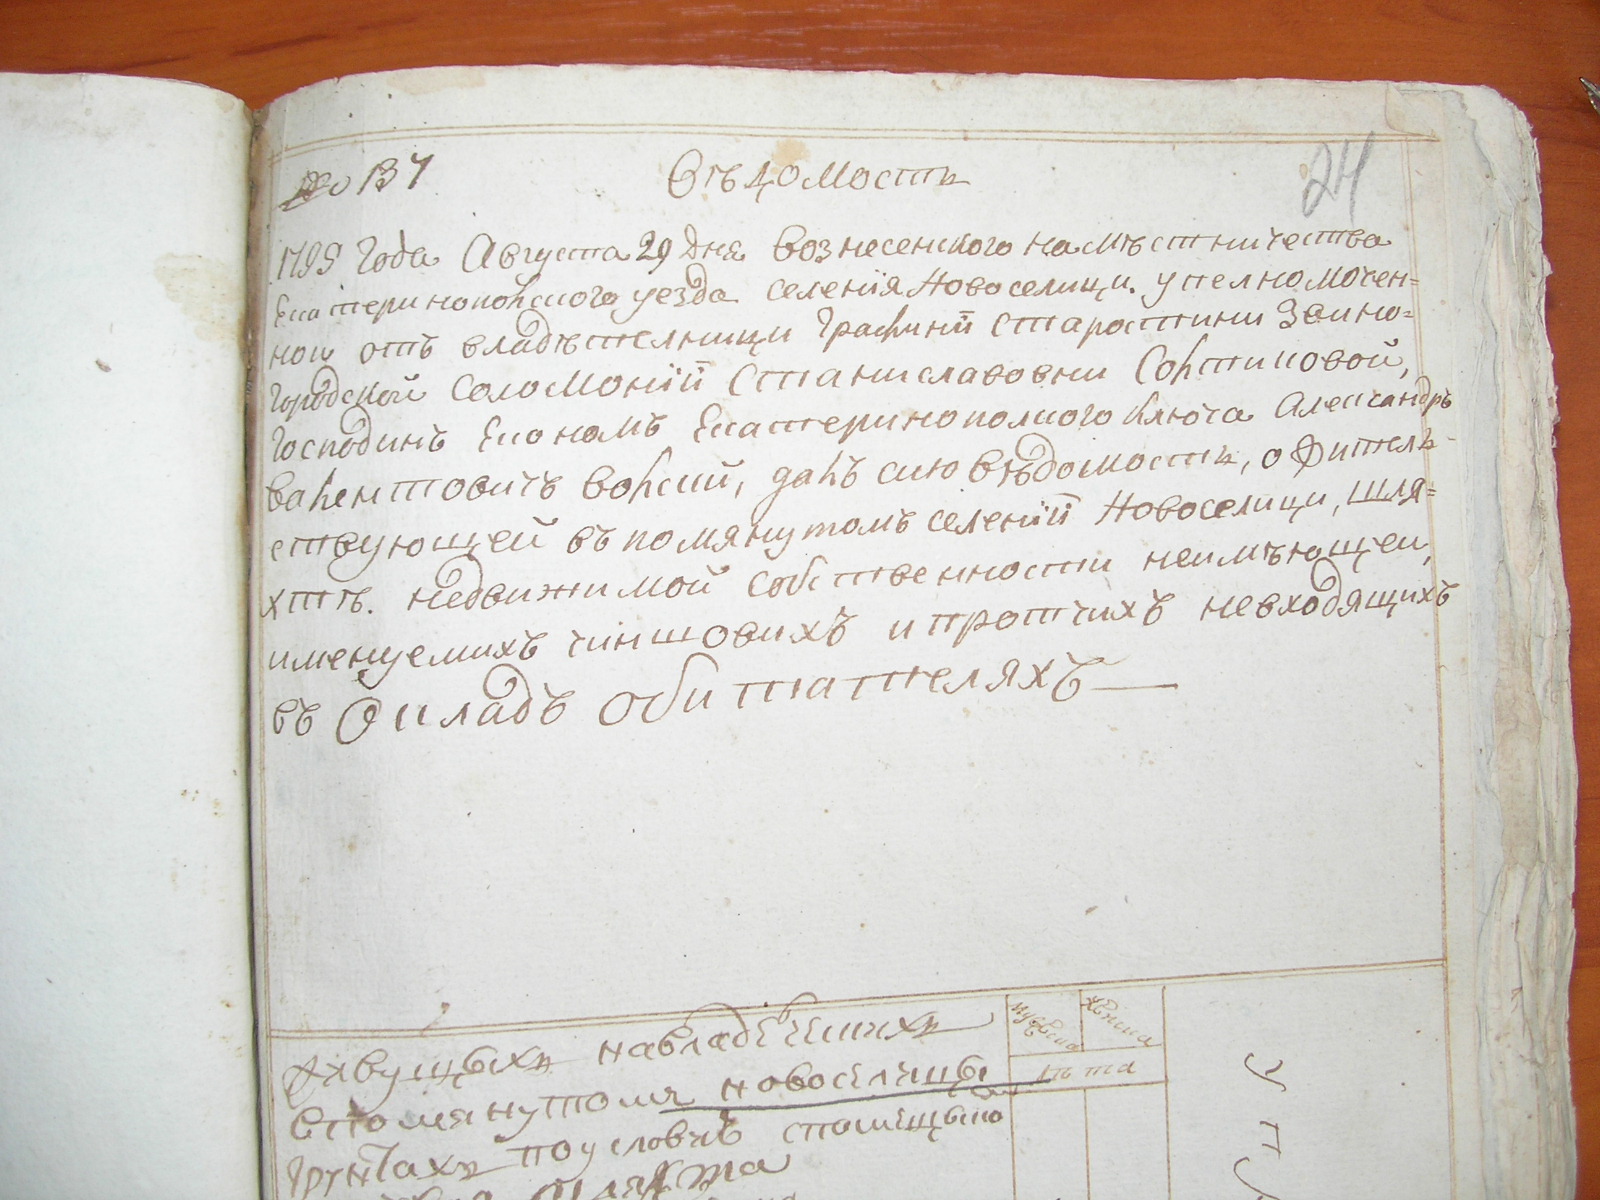 № 137
Вѣдомость
24
1795 Года Августа 29 Дня Вознесенского намѣстничества
Екатеринополского уезда селения Новоселици. уполномочен=
ной отъ владѣтелници Графиний Старостини Звино=
городской Соломоний Станиславовни Солтиковой,
Господинъ Економъ Екатеринополского Ключа Александръ
валентовичъ волский, далъ сию вѣдомость, о Фитель
ствующей въ помянутомъ селений Новоселици, шля=
хтѣ. недвижимой собственности неимѣющей,
именуемихъ чиншовихъ и протчихъ невходящихъ
въ Окладъ обитателяхъ
живущыхъ навладѣческихъ
впомянутомъ новоселицы
грунтахъ поусловью спомещыко
мужеска
женска
лѣта
У
П